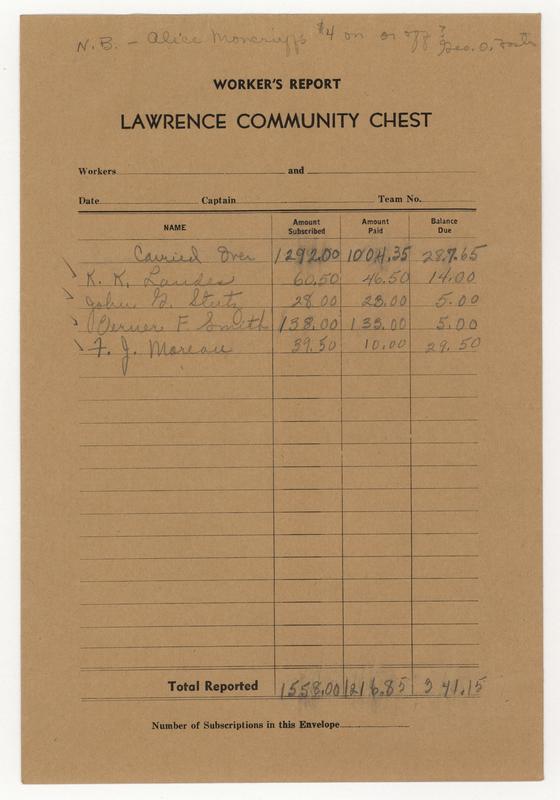 N.B. - Alice Moncrieff's $4 on or off?
Geo. O. Foster
WORKER'S REPORT
LAWRENCE COMMUNITY CHEST
Workers and
Date Captain Team No.
NAME Amount Subscribed Amount Paid Balance Due
Carried Over 1292.00 1004.35 287.65
K. K. Landes 60.50 46.50 14.00
John G. Stutz 28.00 23.00 5.00
Verner F Smith 138.00 133.00 5.00
F. J. Moreau 39.50 10.00 29.50
Total Reported 1558.00 1216.85 341.15
Number of Subscriptions in this Envelope